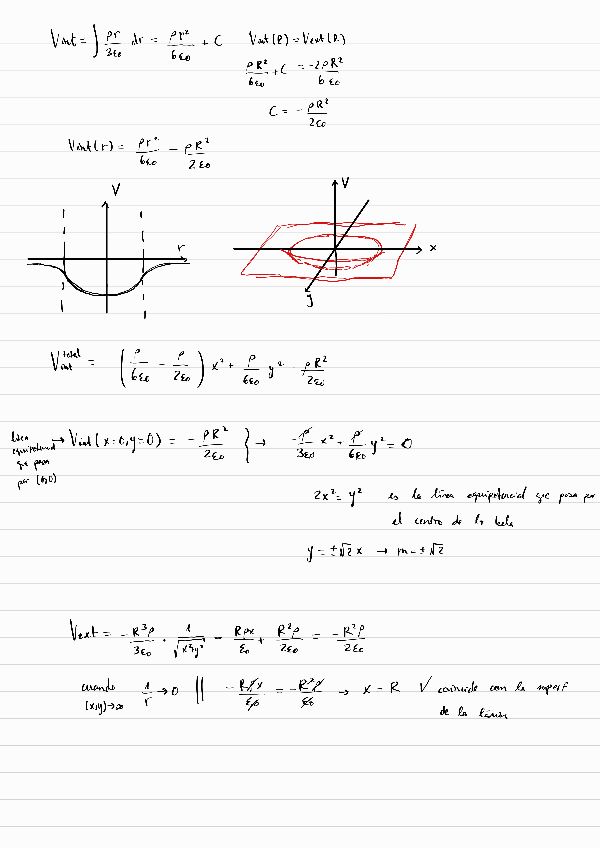 Vint = ∫ ρr/3ε₀ dr = ρr²/6ε₀ + C   Vint(R) = Vext(R)
ρR²/6ε₀ + C = -2ρR²/6ε₀
C = - ρR²/2ε₀
Vint(r) = ρr²/6ε₀ - ρR²/2ε₀
V
r
V
x
y
Vint^total = (ρ/6ε₀ - ρ/2ε₀) x² + ρ/6ε₀ y² - ρR²/2ε₀
línea equipotencial que pasa por (0,0) → Vint(x=0,y=0) = - ρR²/2ε₀ } → -ρ/3ε₀ x² + ρ/6ε₀ y² = 0
2x² = y² es la línea equipotencial que pasa por
el centro de la bola
y = ±√2 x → m = ±√2
Vext = -R³ρ/3ε₀ · 1/√x²+y² - Rρx/ε₀ + R²ρ/2ε₀ = -R²ρ/2ε₀
cuando (x,y)→∞ 1/r → 0 || -Rρx/ε₀ = -R²ρ/ε₀ → x = R V coincide con la superf
de la lámina